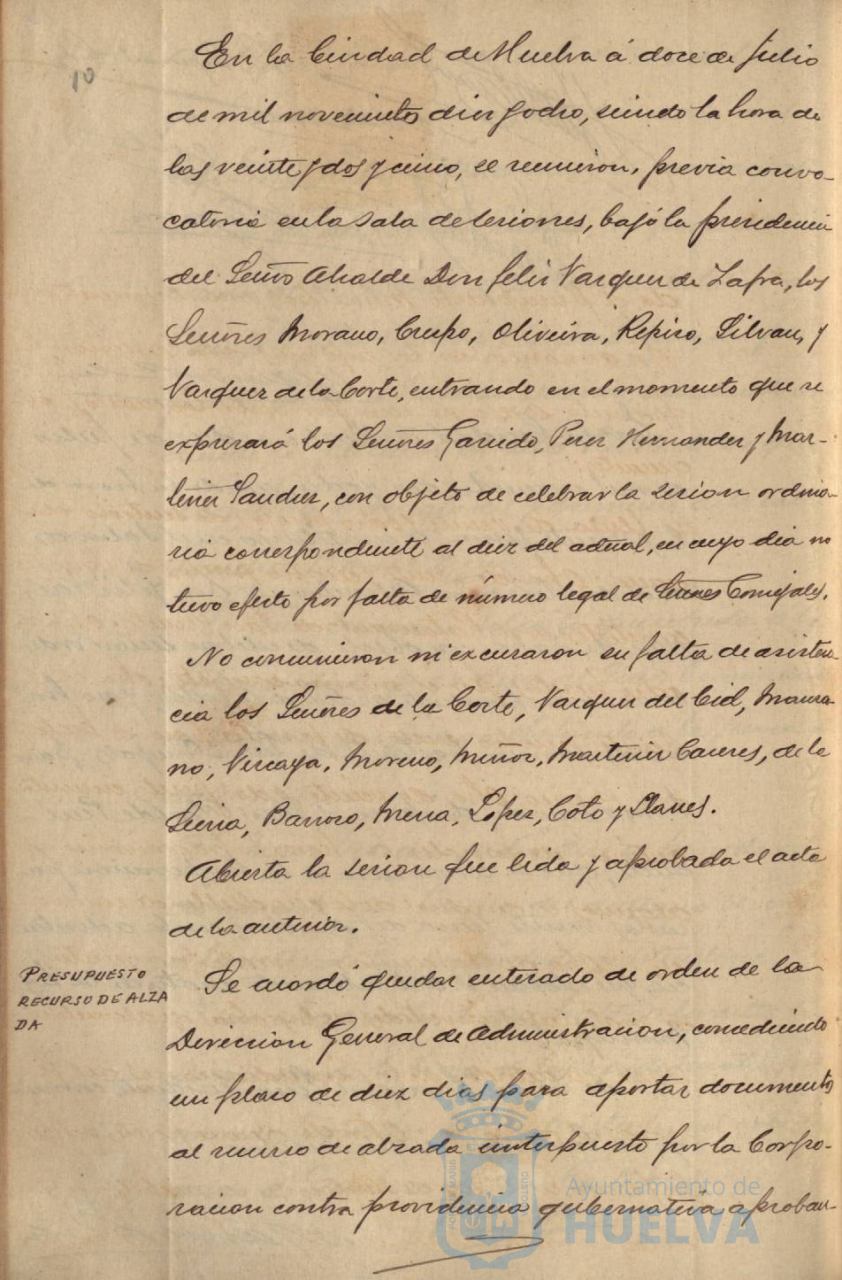 10
En la Ciudad de Huelva á doce de Julio
de mil novecientos diez y ocho, siendo la hora de
las veinte y dos y cinco, se reunieron, previa convo-
catoria en la Sala de Sesiones, bajo la presidencia
del Señor Alcalde Don Felix Vazquez de Zafra, los
Señores Morano, Crespo, Oliveira, Repiso, Silvan, y
Vazquez de la Corte, entrando en el momento que se
expresará los Señores Garrido, Perez Hernandez y Mar-
tinez Sanchez, con objeto de celebrar la sesion ordina-
ria correspondiente al diez del actual, en cuyo dia no
tuvo efecto por falta de número legal de Señores Concejales.
No concurrieron ni excusaron su falta de asisten-
cia los Señores de la Corte, Vazquez del Cid, Maura-
no, Vizcaya, Moreno, Muñoz, Martinez Caceres, de la
Sierra, Barroso, Mena, Lopez, Coto y Llanes.
Abierta la sesion fue leida y aprobada el acta
de la anterior.
PRESUPUESTO
RECURSO DE ALZA
DA
Se acordó quedar enterado de orden de la
Direccion General de Administracion, concediendo
un plazo de diez dias para aportar documentos
al recurso de alzada interpuesto por la Corpo-
racion contra providencia gubernativa aproban-
Ayuntamiento de
HUELVA